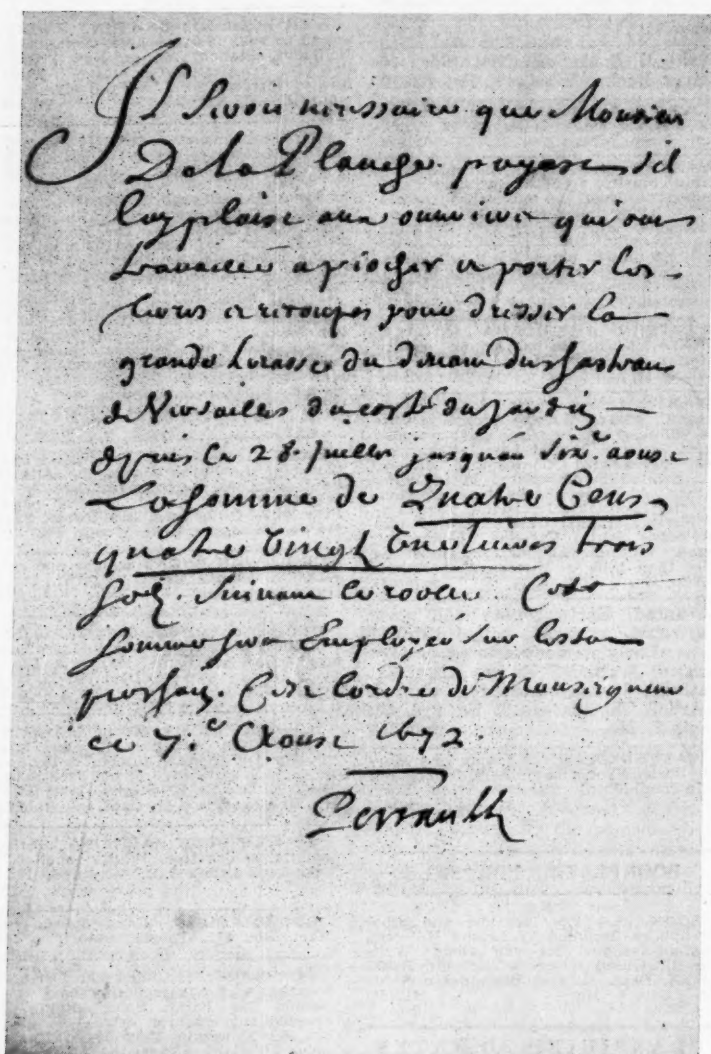 Il seroit necessaire que Monsieur
De la Planche payast s'il
luy plaist aux ouvriers qui ont
travaillé a piocher et porter les
terres et recoupes pour dresser la
grande terrasse du devant du chasteau
de Versailles du costé du jardin
depuis le 28. juillet jusqu'au six.e aoust
La somme de Quatre Cens
quatre vingt livres trois
sols. suivant le roolle Cette
somme sera Employée sur l'estat
prochain. C'est l'ordre de Monseigneur
ce 7.e Aoust 1672.
Perrault